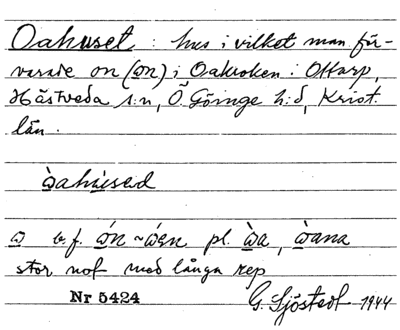 Oahuset : hus i vilket man för-
varade on (ɷn) i Oakroken i Ottarp,
Hästveda s:n, Ö. Göinge h:d, Krist.
län.
ɷ̀ahúsed
ɷ b.f. ɷ́n ~ ɷ́en pl. ɷ̀a, ɷ̀ana
stor not med långa rep
Nr 5424 G. Sjöstedt 1944